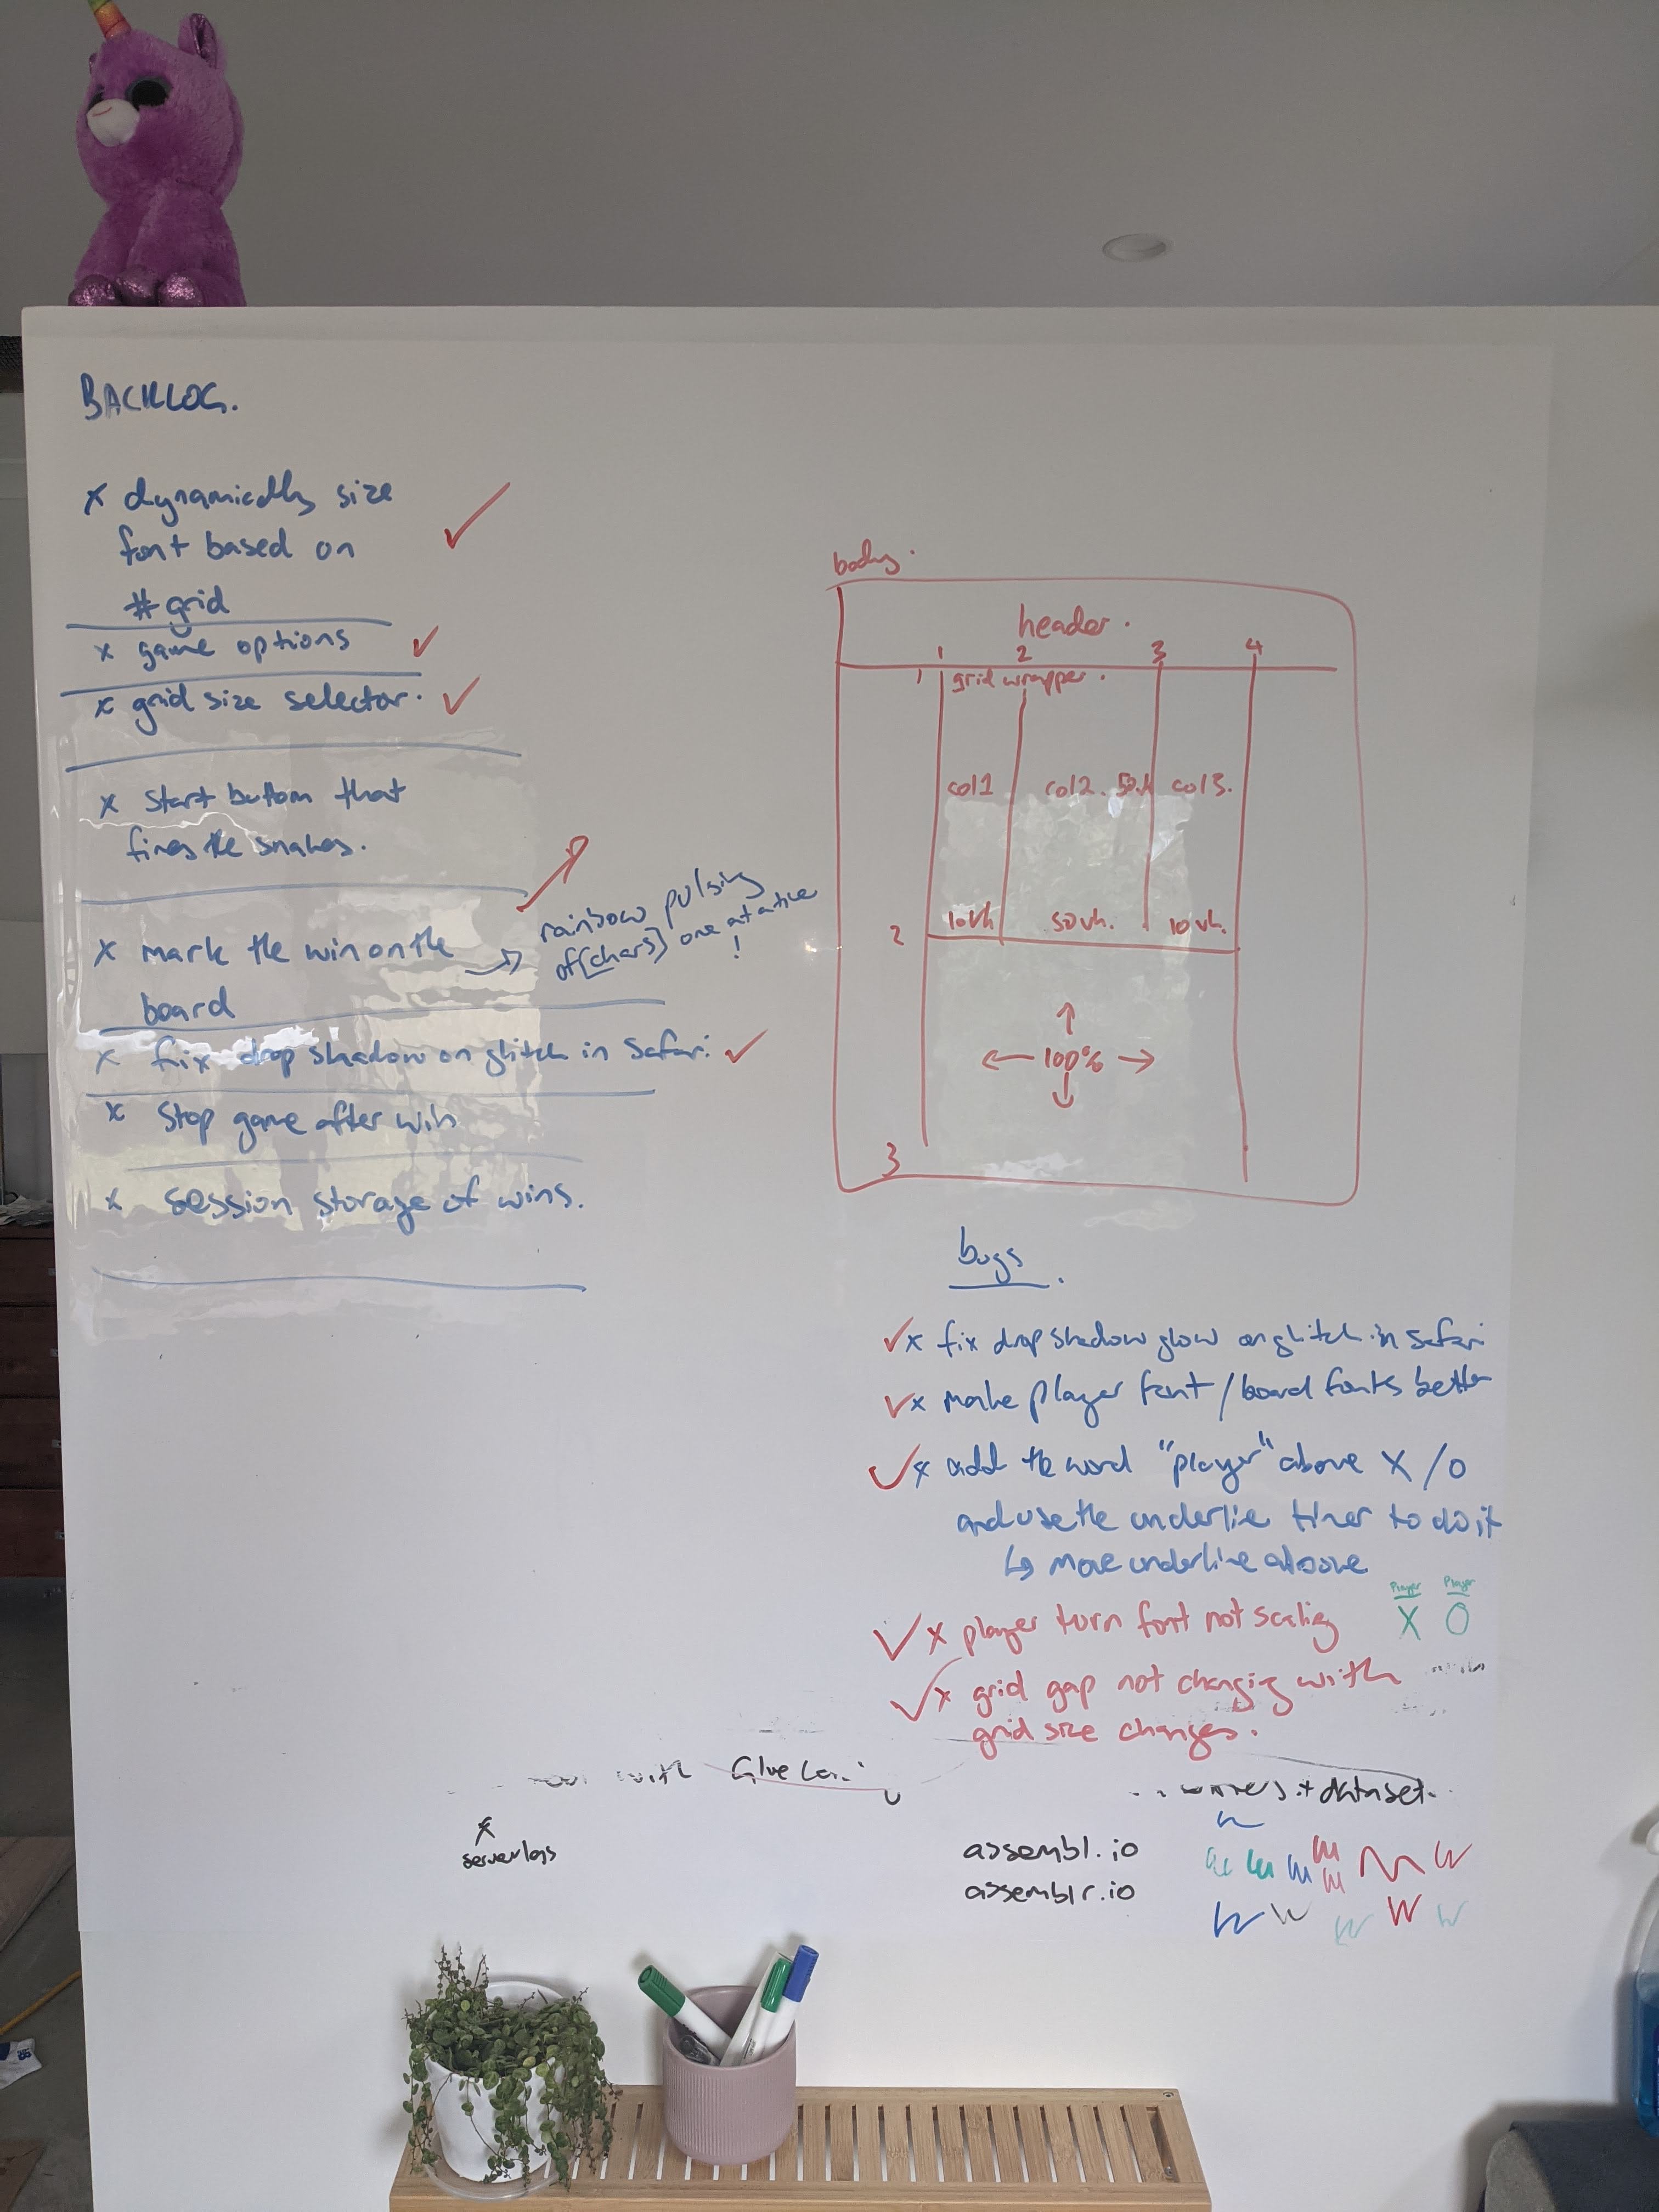 BACKLOG.
x dynamically size
font based on
# grid
x game options ✓
x grid size selector. ✓
x start button that
fires the snakes.
x mark the win on the
board
→ rainbow pulsing
of [chars] one at a time
!
x fix drop shadow on glitch in Safari ✓
x Stop game after win
x session storage of wins.
body.
header.
1 2 3 4
1 grid wrapper.
col1 col2. col3.
2 10vh 50vh. 10vh.
100%
3
bugs
✓ x fix drop shadow glow on glitch in Safari
✓ x make player font / board fonts better
✓ x add the word "player" above X / O
and use the underline timer to do it
↳ move underline above
Player Player
X O
✓ x player turn font not scaling
✓ x grid gap not changing with
grid size changes.
with Glue
+ dataset.
x
server logs
assembl.io
assemblr.io